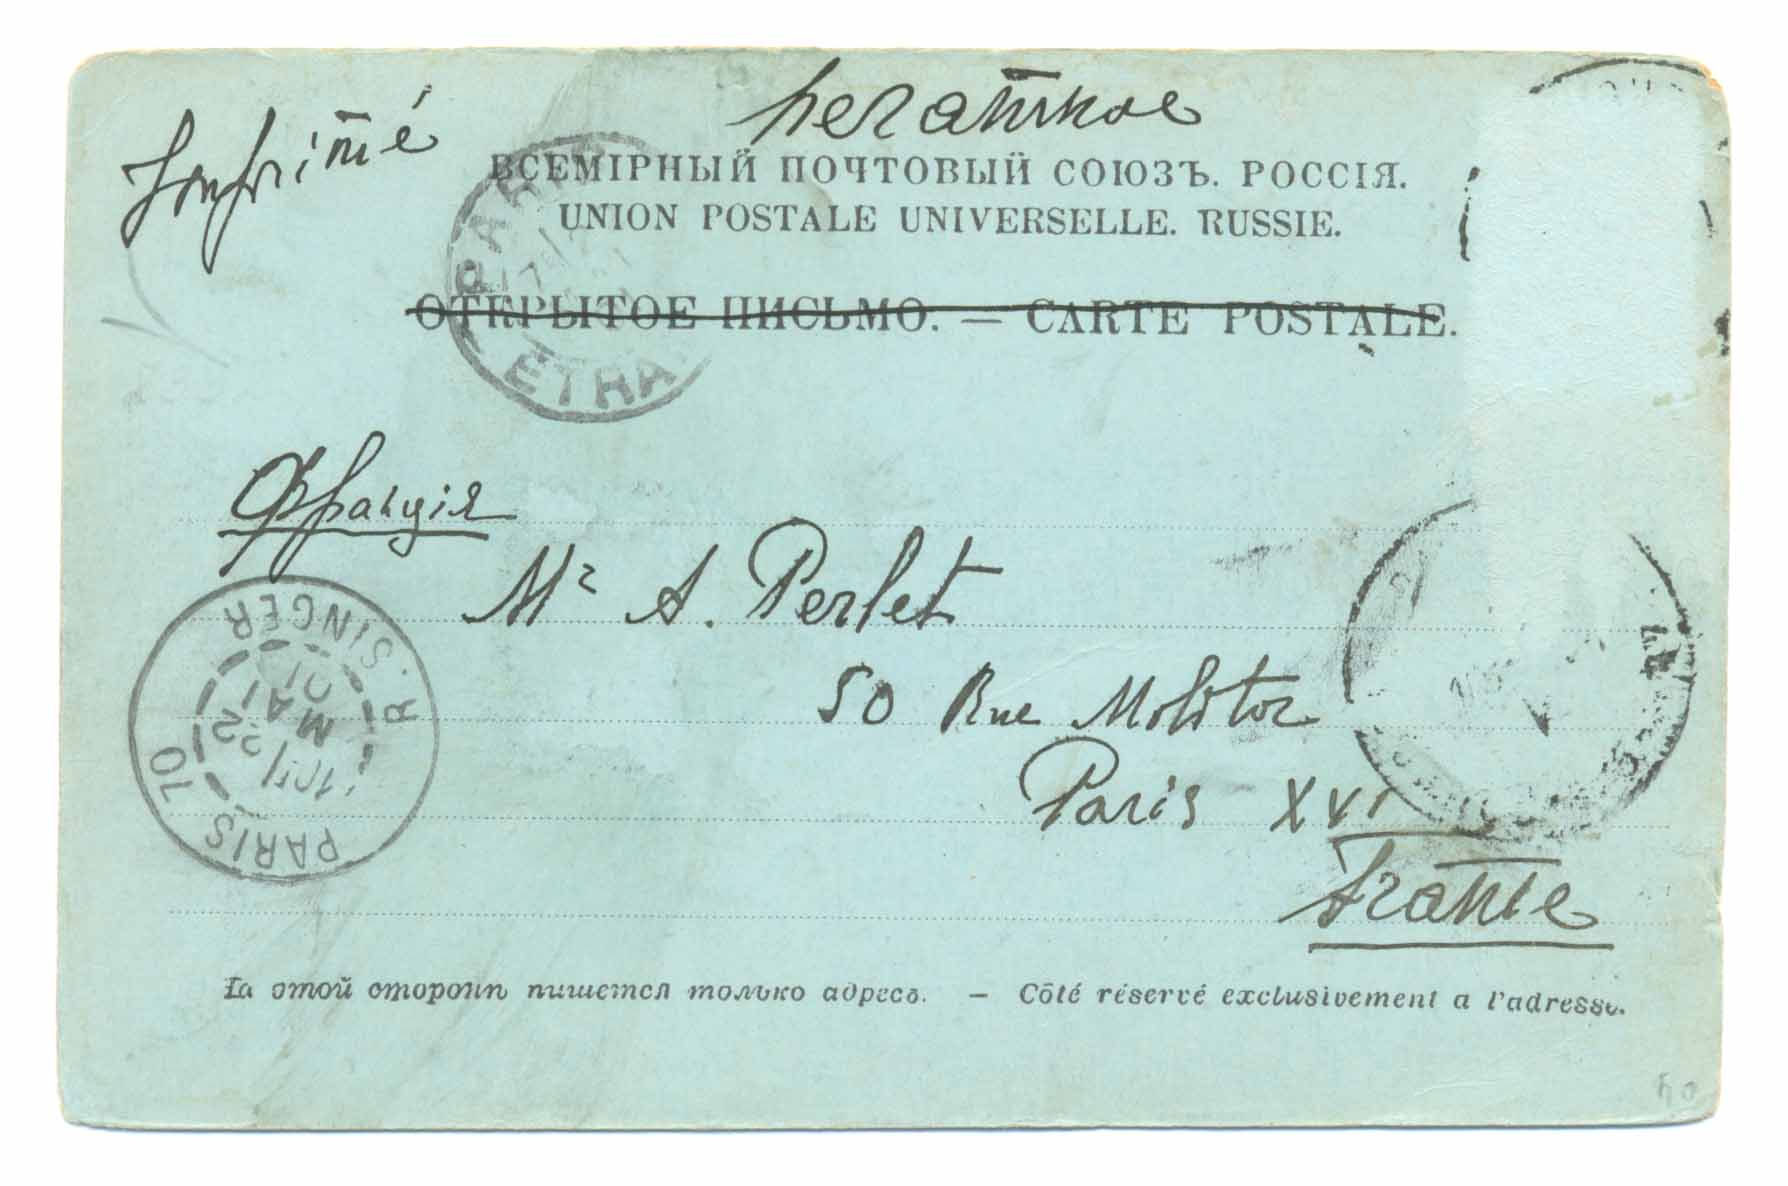 Imprimé
печатное
ВСЕМІРНЫЙ ПОЧТОВЫЙ СОЮЗЪ. РОССІЯ.
UNION POSTALE UNIVERSELLE. RUSSIE.
ОТКРЫТОЕ ПИСЬМО. — CARTE POSTALE.
PARIS
ETRA
Франція
Mr A. Perlet
50 Rue Molitor
Paris XVI
France
PARIS 10 R. SINGER
22
MAI
01
На этой сторонѣ пишется только адресъ. — Côté réservé exclusivement a l'adresse.